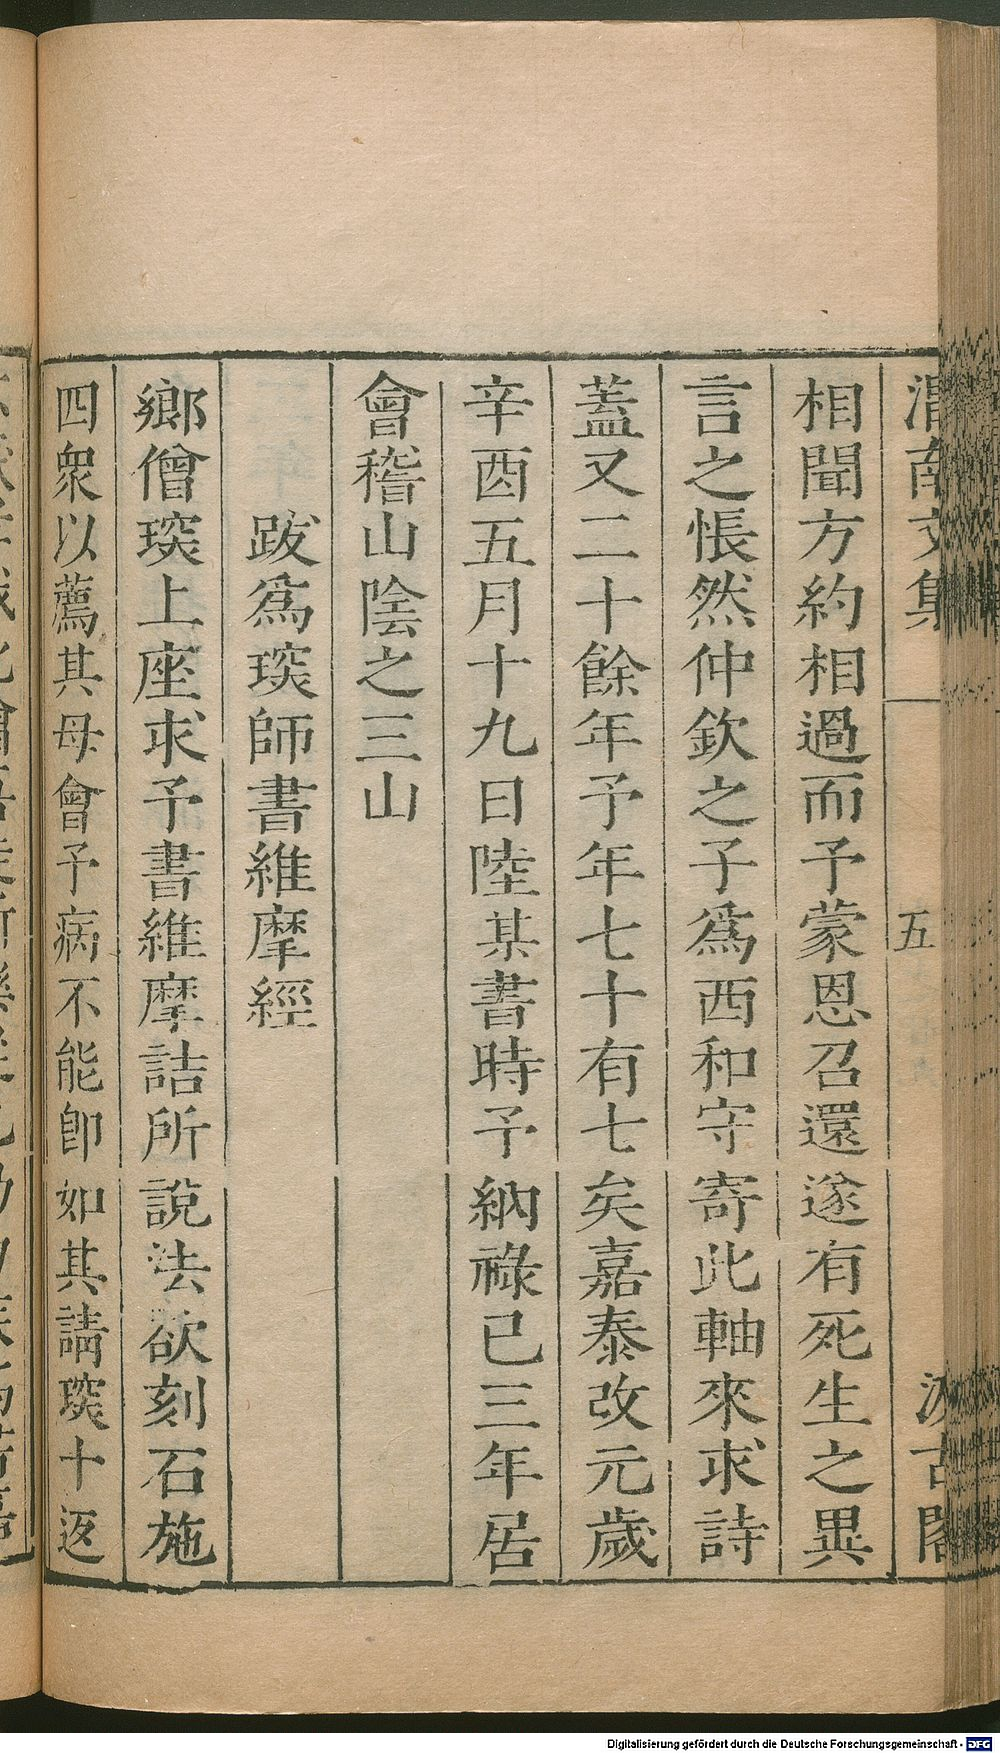 渭南文集 五 汲古閣
相聞方約相過而予蒙恩召還遂有死生之異
言之悵然仲欽之子爲西和守寄此軸來求詩
蓋又二十餘年予年七十有七矣嘉泰改元歲
辛酉五月十九日陸某書時予納祿已三年居
會稽山陰之三山
跋爲琰師書維摩經
鄉僧琰上座求予書維摩詰所說法欲刻石施
四衆以薦其母會予病不能卽如其請琰十返
Digitalisierung gefördert durch die Deutsche Forschungsgemeinschaft - DFG